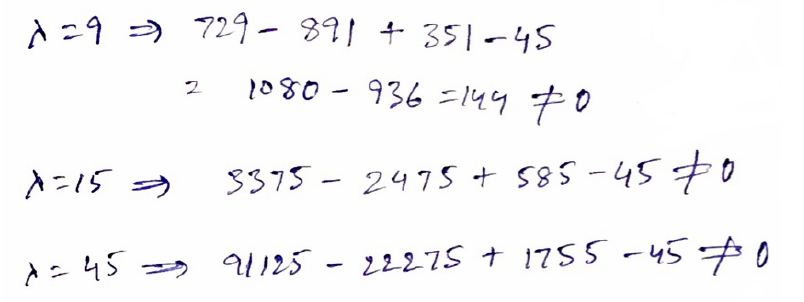 λ=9 ⇒ 729 - 891 + 351 - 45
= 1080 - 936 = 144 ≠ 0
λ=15 ⇒ 3375 - 2475 + 585 - 45 ≠ 0
λ=45 ⇒ 91125 - 22275 + 1755 - 45 ≠ 0